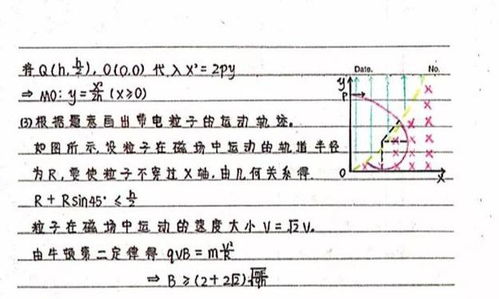 Date.
No.
将Q(h, h/2), O(0.0) 代入 X²=2py
⇒ MO: y = x²/2h (x≥0)
(3)根据题意画出带电粒子的运动轨迹。
如图所示,设粒子在磁场中运动的轨道半径
为R,要使粒子不穿过X轴,由几何关系得
R + Rsin45° ≤ h/2
粒子在磁场中运动的速度大小 V=√2V₀
由牛顿第二定律得 qVB = m V²/R
⇒ B ≥ (2+2√2)
y
P
O
X